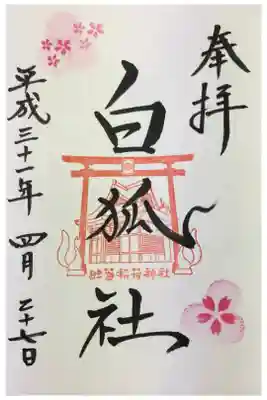 奉拝
白狐社
稲荷神社
平成三十一年 四月 二十七日